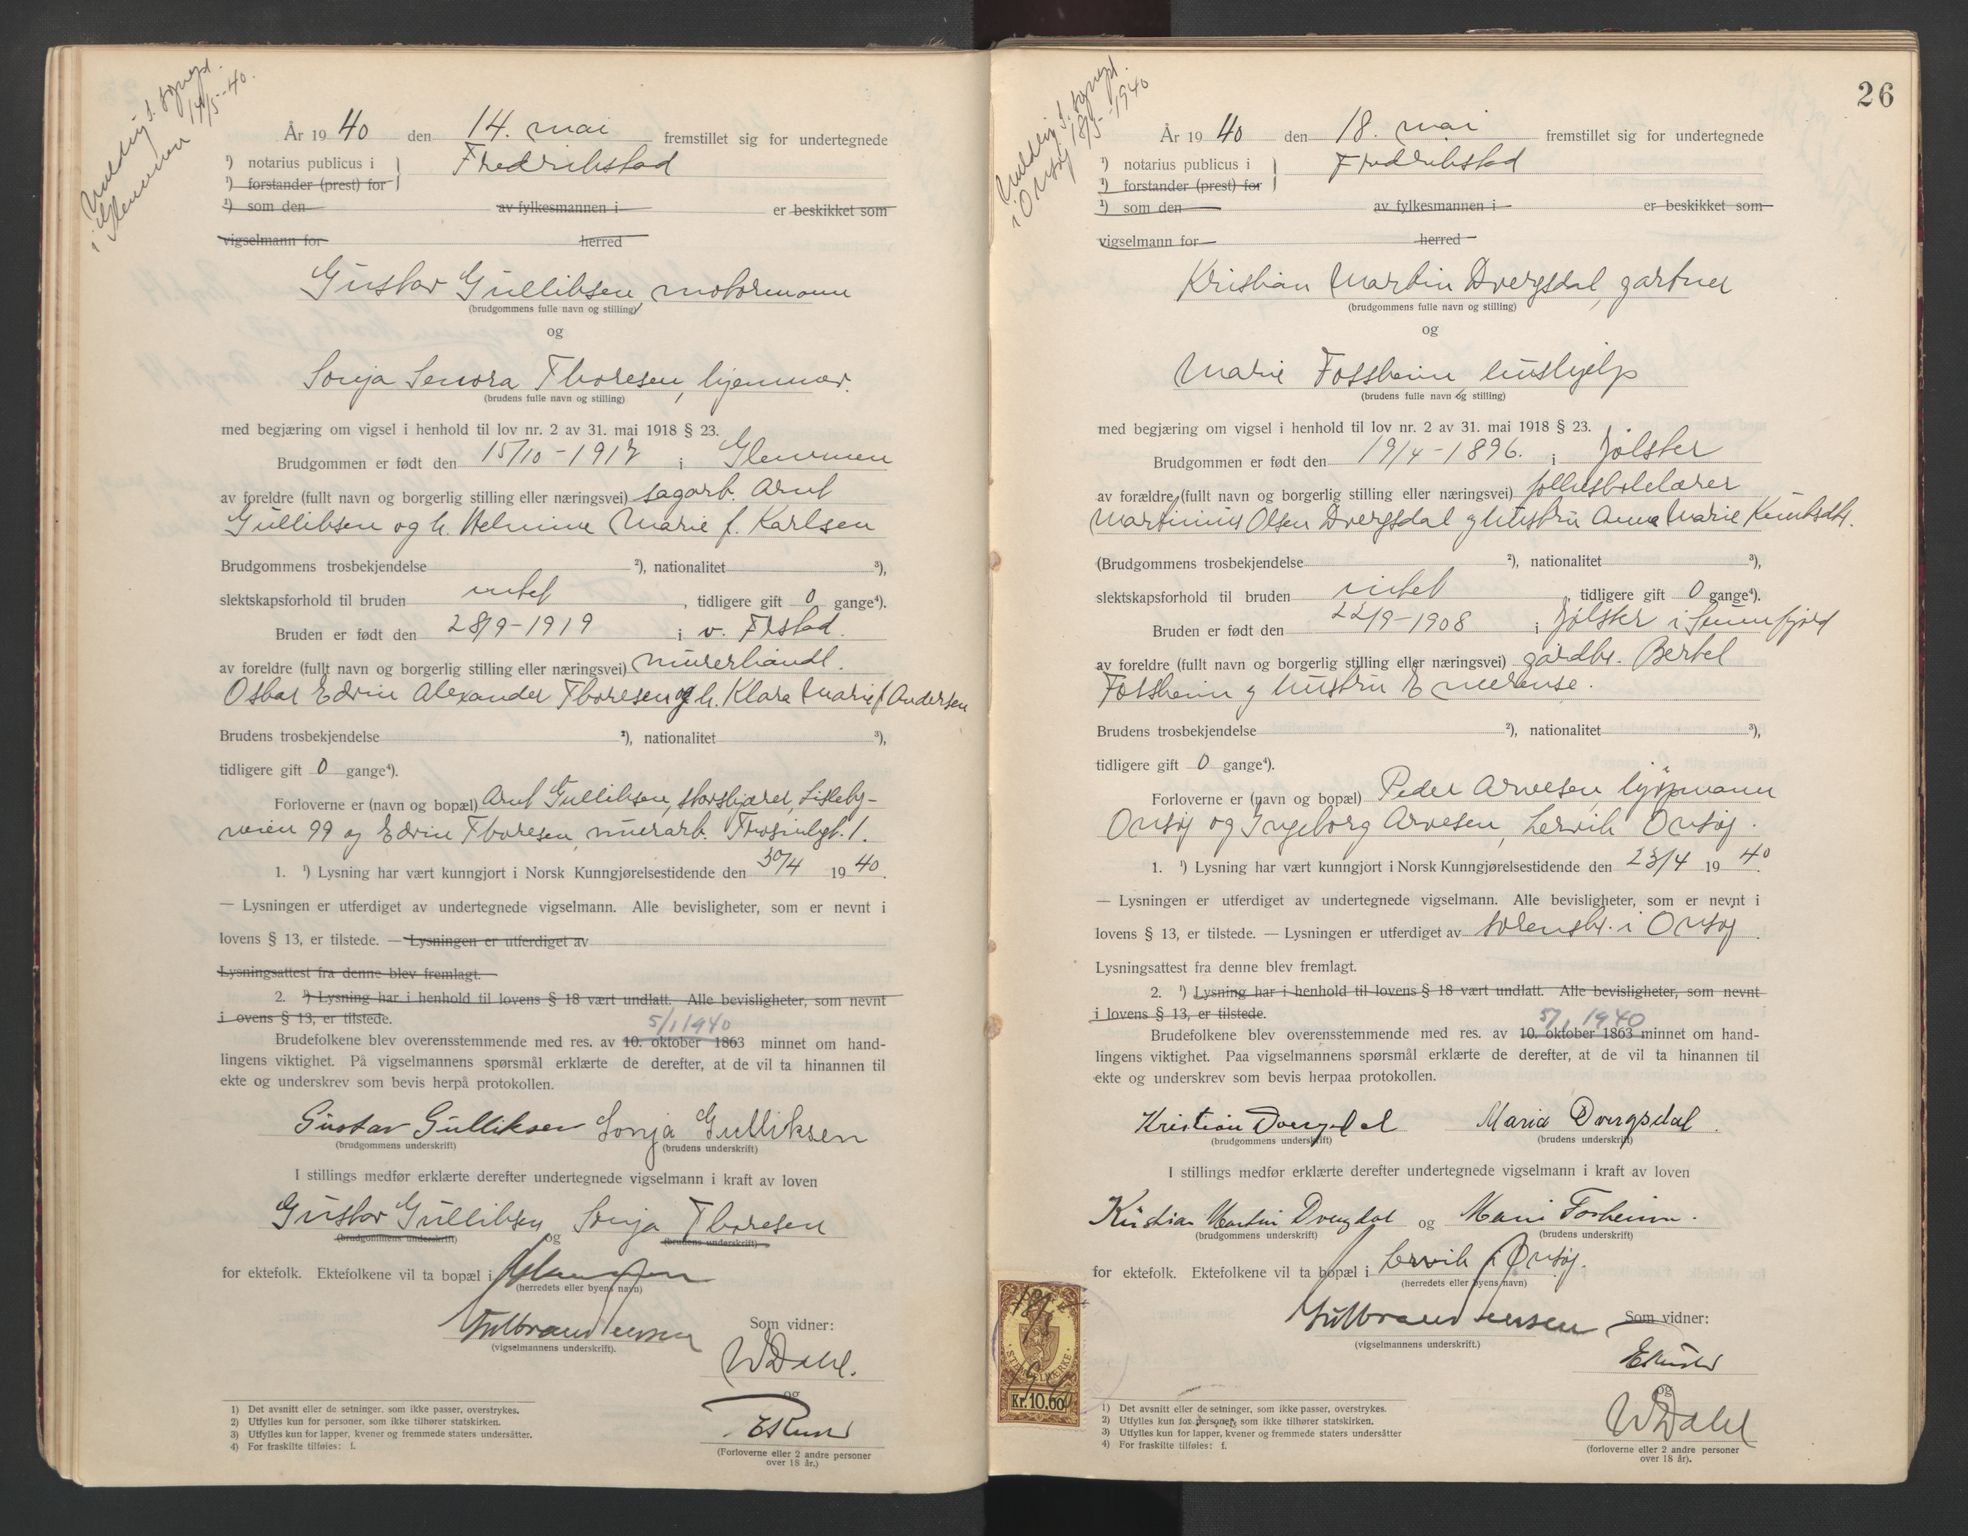 Melding t. sognepr.
i Glemmen 14/5-40.
År 1940 den 14. mai fremstillet sig for undertegnede
¹) notarius publicus i Fredrikstad
¹) forstander (prest) for
¹) som den av fylkesmannen i er beskikket som
vigselmann for herred
Gustav Gulliksen, motormann
(brudgommens fulle navn og stilling)
og
Sonja Senora Thoresen, hjemmev.
(brudens fulle navn og stilling)
med begjæring om vigsel i henhold til lov nr. 2 av 31. mai 1918 § 23.
Brudgommen er født den 15/10-1917 i Glemmen
av foreldre (fullt navn og borgerlig stilling eller næringsvei) sagarb. Arnt
Gulliksen og h. Helmine Marie f. Karlsen
Brudgommens trosbekjendelse ²), nationalitet ³),
slektskapsforhold til bruden intet, tidligere gift 0 gange⁴).
Bruden er født den 28/9-1919 i v. Frstad.
av foreldre (fullt navn og borgerlig stilling eller næringsvei) murerhåndl.
Oskar Edvin Alexander Thoresen og h. Klara Marie f Andersen
Brudens trosbekjendelse ²), nationalitet ³),
tidligere gift 0 gange⁴).
Forloverne er (navn og bopæl) Arnt Gulliksen, stavskjærer, Lisleby-
veien 99 og Edvin Thoresen, murarb. 1.
1. ¹) Lysning har vært kunngjort i Norsk Kunngjørelsestidende den 30/4 1940.
— Lysningen er utferdiget av undertegnede vigselmann. Alle bevisligheter, som er nevnt i
lovens § 13, er tilstede. — Lysningen er utferdiget av
Lysningsattest fra denne blev fremlagt.
2. ¹) Lysning har i henhold til lovens § 18 vært undlatt. Alle bevisligheter, som nevnt
i ovens § 13, er tilstede.
5/1 1940
Brudefolkene blev overensstemmende med res. av 10. oktober 1863 minnet om hand-
lingens viktighet. På vigselmannens spørsmål erklærte de derefter, at de vil ta hinannen til
ekte og underskrev som bevis herpå protokollen.
Gustav Gulliksen Sonja Gulliksen
(brudgommens underskrift) (brudens underskrift)
I stillings medfør erklærte derefter undertegnede vigselmann i kraft av loven
Gustav Gulliksen Sonja Thoresen
(brudgommens underskrift) og (brudens underskrift)
for ektefolk. Ektefolkene vil ta bopæl i Glemmen
(herredets eller byens navn)
Gulbrand Jensen
Som vidner:
(vigselmannens underskrift).
W Dahl.
og
(Forloverne eller 2 andre personer
over 18 år.)
1) Det avsnitt eller de setninger, som ikke passer, overstrykes.
2) Utfylles kun for personer, som ikke tilhører statskirken.
3) Utfylles kun for lapper, kvener og fremmede staters undersåtter.
4) For fraskilte tilføies: f.
26
Melding t. sognepr.
i Onsøy 18/5-1940
År 1940 den 18. mai fremstillet sig for undertegnede
¹) notarius publicus i Fredrikstad
¹) forstander (prest) for
¹) som den av fylkesmannen i er beskikket som
vigselmann for herred
Kristian Martin Dvergsdal, gartner
(brudgommens fulle navn og stilling)
og
Marie Fossheim, hushjelp
(brudens fulle navn og stilling)
med begjæring om vigsel i henhold til lov nr. 2 av 31. mai 1918 § 23.
Brudgommen er født den 19/4-1896. i Jølster
av forældre (fullt navn og borgerlig stilling eller næringsvei) folkeskolelærer
Martinius Olsen Dvergsdal og hustru Anna Marie Knutsdtr.
(Brudgommens trosbekjendelse ²), nationalitet ³),
slektskapsforhold til bruden intet, tidligere gift 0 gange⁴).
Bruden er født den 22/9-1908 i Jølster i Sunnfjord
av foreldre (fullt navn og borgerlig stilling eller næringsvei) gårdbr. Bertel
Fossheim og hustru Emerense.
Brudens trosbekjendelse ²), nationalitet ³),
tidligere gift 0 gange⁴).
Forloverne er (navn og bopæl) Peder Arvesen,
Onsøy og Ingeborg Arvesen, Lervik Onsøy.
1. ¹) Lysning har vært kunngjort i Norsk Kunngjørelsestidende den 23/4 1940.
— Lysningen er utferdiget av undertegnede vigselmann. Alle bevisligheter, som er nevnt i
lovens § 13, er tilstede. — Lysningen er utferdiget av sorenskr. i Onsøy.
Lysningsattest fra denne blev fremlagt.
2. ¹) Lysning har i henhold til lovens § 18 vært undlatt. Alle bevisligheter, som nevnt
i lovens § 13, er tilstede.
5/1 1940
Brudefolkene blev overensstemmende med res. av 10. oktober 1863 minnet om hand-
lingens viktighet. Paa vigselmannens spørsmål erklærte de derefter, at de vil ta hinannen til
ekte og underskrev som bevis herpaa protokollen.
Kristian Dvergsdal Maria Dvergsdal.
(brudgommens underskrift) (brudens underskrift)
I stillings medfør erklærte derefter undertegnede vigselmann i kraft av loven
Kristian Martin Dvergsdal og Marie Fossheim.
(brudgommens underskrift) (brudens underskrift)
for ektefolk. Ektefolkene vil ta bopæl i Lervik i Onsøy.
(herredets eller byens navn)
Gulbrand Jensen
Som vidner:
(vigselmannens underskrift).
og
W Dahl
(forloverne eller 2 andre personer
over 18 år).
STEMPELMERKE
Kr. 10.60
1) Det avsnitt eller de setninger, som ikke passer, overstrykes.
2) Utfylles kun for personer, som ikke tilhører statskirken.
3) Utfylles kun for lapper, kvener og fremmede staters undersåtter
4) For fraskilte tilføies: f.